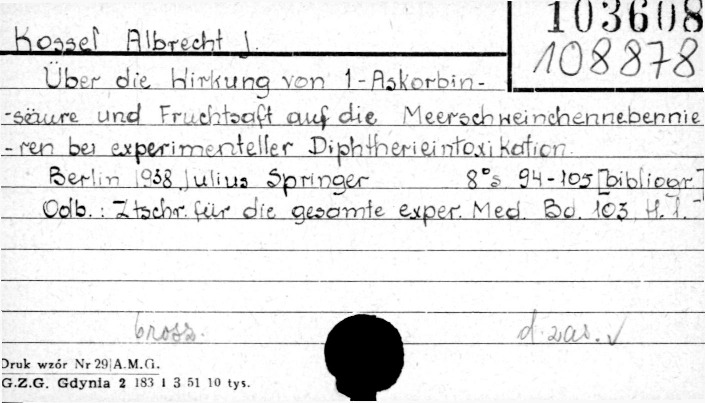 103608
108878
Kossel Albrecht J.
Über die Wirkung von 1-Askorbin-
-säure und Fruchtsaft auf die Meerschweinchennebennie
-ren bei experimenteller Diphtherieintoxikation.
Berlin 1938 Julius Springer 8° s 94-105 [bibliogr]
Odb.: Ztschr. für die gesamte exper. Med. Bd. 103, H. 1.
brosz. d. zas. ✓
Druk wzór Nr 29|A.M.G.
G.Z.G. Gdynia 2 183 1 3 51 10 tys.